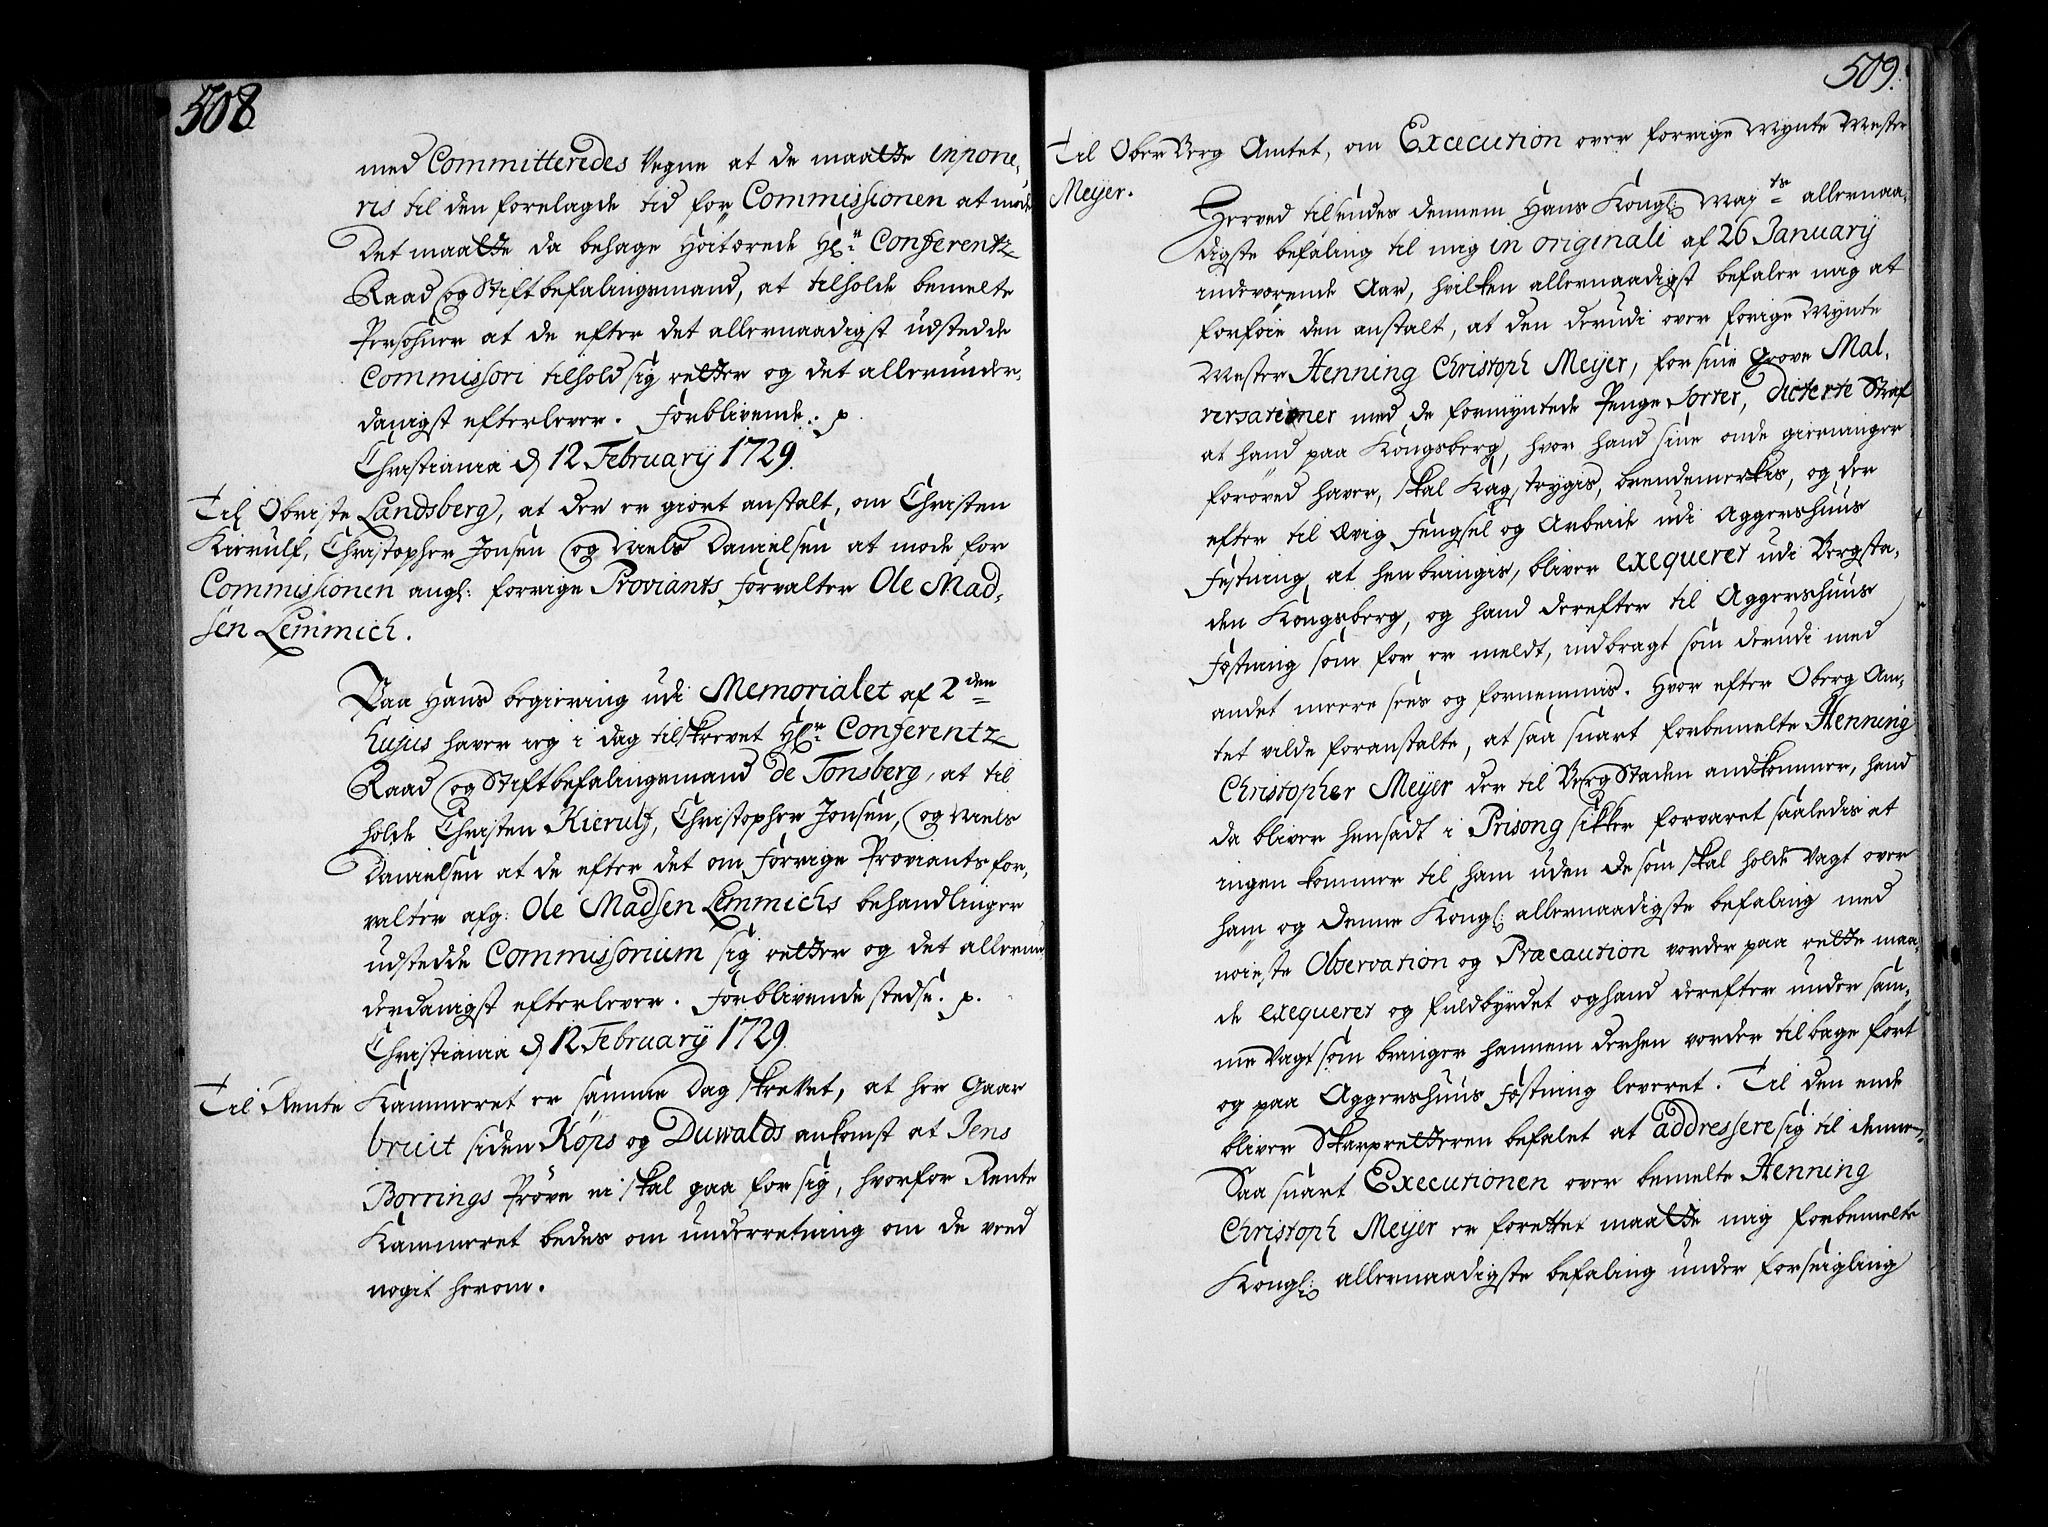 508.
med Committeredes Vegne at de maatte inpone-
ris til den forelagde tid for Commissionen at mode
Det maatte da behage Høitærede Hr: Conferentz
Raad og Stiftbefalingsmand, at tilholde bemelte
Persohner at de efter det allernaadigst udstedde
Commissori tilhold sig retter og det allerunder-
danigst efterlever. Forblivende. p
Christiania d 12 February 1729.
Til Obriste Landsberg, at der er giort anstalt, om Christen
Kierulf, Christopher Jonsen og Niels Danielsen at mode for
Commissionen angl: forrige Proviants Forvalter Ole Mad-
sen Lemmich.
Paa Hans begiering udi Memorialet af 2den
hujus haver ieg i dag tilskrevet Hr: Conferentz
Raad og Stiftbefalingsmand de Tonsberg, at til
holde Christen Kierulf, Christopher Jonsen, og Niels
Danielsen at de efter det om forrige Proviantsfor-
valter afg: Ole Madsen Lemmichs behandlinger
udstedde Commissorium sig retter og det allerun-
derdanigst efterlever. Forblivende stedse. p.
Christiania d 12 February 1729.
Til Rente Kammeret er samme Dag skrevet, at her Gaar
bruit siden Köps og Duwalds ankomst at Jens
Borrings Pröve ei skal gaa for sig, hvorfor Rente
Kammeret bedes om underretning om de veed
noget herom.
509.
Til Ober Berg Amtet, om Execution over forrige Mynte Mester
Meyer.
Herved tilsendes dennem Hans Kongl: Mayts allernaa-
digste befaling til mig in originali af 26 January
indeværende Aar, hvilken allernaadigst befaler mig at
forføie den anstalt, at den derudi over forige Mynte
Mester Henning Christoph Meyer, for sine grove Mal-
versationer med de formyntede Penge Sorter, dicterte Straf
at hand paa Kongsberg, hvor hand sine onde gierninger
forøved haver, skal Kagstrygis, brendemerkis, og der
efter til Ævig Fengsel og Arbeide udi Aggershuus
Festning at henbringis, bliver exequeret udi Bergsta-
den Kongsberg, og hand derefter til Aggershuus
Fæstning som for er meldt, indbragt som derudi med
andet meere sees og fornemmis. Hvor efter Oberg Am-
tet vilde foranstalte, at saa snart forbemelte Henning
Christopher Meyer der til Berg Staden andkommer, hand
da bliver hensadt i Prisong sikker forvaret saaledis at
ingen kommer til ham uden de som skal holde Vagt over
ham og denne Kongl: allernaadigste befaling med
nøieste Observation og Præcaution vorder paa rette maa-
de exequeret og fuldbyrdet og hand derefter under sam-
me Vagt som bringer hannem derhen vorder tilbage fört
og paa Aggershuus Fæstning leveret. Til den ende
bliver Skarpretteren befalet at addressere sig til dennem.
Saa snart Executionen over bemelte Henning
Christoph Meyer er forettet maatte mig forbemelte
Kongl: allernaadigste befaling under forseigling